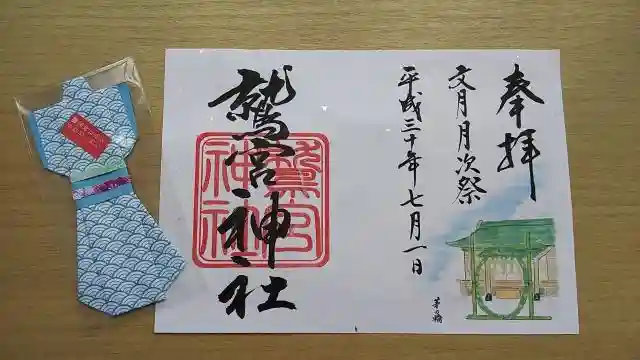 奉拝
文月月次祭
平成三十年七月一日
鷲宮神社
鷲宮神社
茅の輪